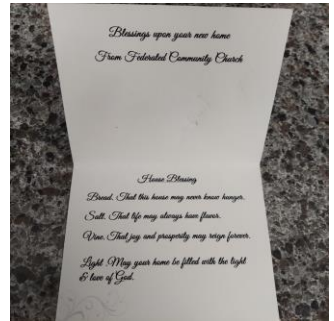 Blessings upon your new home
From Federated Community Church
House Blessing
Bread. That this house may never know hunger.
Salt. That life may always have flavor.
Vine. That joy and prosperity may reign forever.
Light. May your home be filled with the light
& love of God.